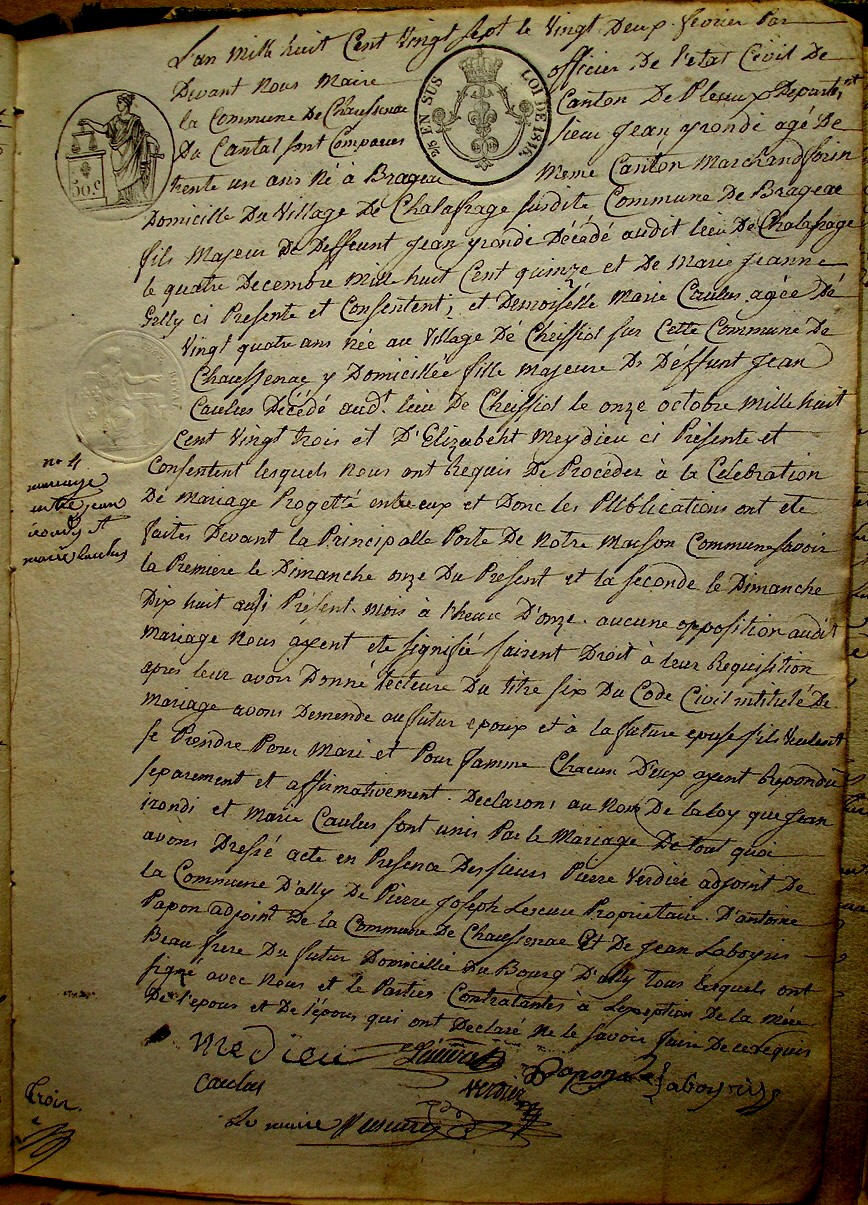 L'an mille huit Cent Vingt sept le Vingt Deux fevrier Par
Devant Nous Maire officier De l'etat Civil De
la Commune De Chaussenac Canton De Pleaux Departnt
Du Cantal sont Comparus sieur Jean yrondi agé De
trente un ans Né à Brageac meme Canton Marchand forin
Domicille Du Village De Chalafrage susdite Commune De Brageac
fils Majeur De Deffeunt Jean yrondi Décédé audit lieu De Chalafrage
le quatre Decembre Mille huit Cent quinze et De Marie Jeanne
Gelly ci Presente et Consentent, et Demoiselle Marie Caulus agée Dé
Vingt quatre ans Née au Village Dé Cheissiol sur Cette Commune De
Chaussenac y Domicillée fille Majeure De Déffunt Jean
Caulus Décédé audt lieu De Cheissiol le onze octobre Mille huit
Cent Vingt trois et D'Elizabeht Meydieu ci Présente et
Consentent lesquels Nous ont Requis De Proceder à la Celebration
De Mariage Progetté entre eux et Donc les Publications ont eté
faites Devant la Principalle Porte De Notre Maison Commune savoir
la Premiere le Dimanche onze Du Present et la seconde le Dimanche
Dix huit aussi Présent Mois à l'heure D'onze. aucune opposition audit
Mariage Nous ayent ete signifié fairent Droit à leur Requisition
apres leur avoir Donné lecteure Du titre six Du Code Civil intitulé De
Mariage avons Demende au futur epoux et à la future epuse s'ils Veulent
se Prendre Pour Mari et Pour famme Chacun D'eux ayent Repondu
separement et affirmativement. Declarons au Nom De la loy que Jean
irondi et Marie Caulus sont unis Par le Mariage De tout quoi
avons Dressé acte en Presence Des sieurs Pierre Verdier adjoint De
la Commune D'ally De Pierre Joseph Lescure Proprietaire. D'antoine
Papon adjoint De la Commune De Chaussenac Et De Jean Laboyris
Beau frere Du futur Domicillie Du Bourg D'ally tous lesquels ont
signé avec Nous et le Parties Contratantes à L'exeption De la Mère
De l'epous et De l'épous qui ont Declaré Ne le savoir faire De ce requis
no 4
marriage
entre jean
irondy et
marie Caulus
Medieu
Papon
Laboyrie
Caulus
Verdier
Le maire Lescure
Trois.
25 EN SUS LOI DE 1816
50 c
ROYAL